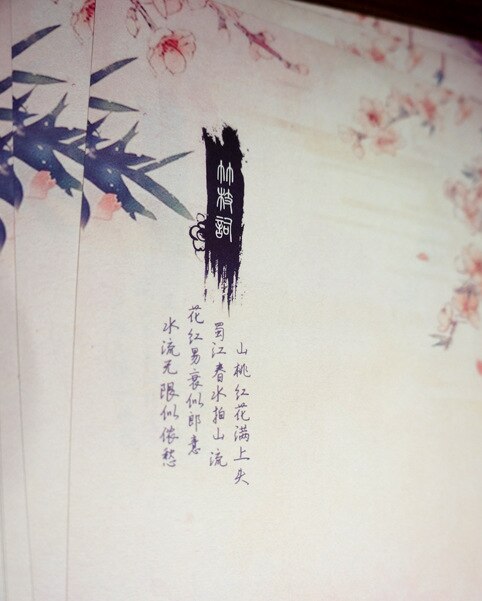 竹枝詞
山桃红花满上头
蜀江春水拍山流
花红易衰似郎意
水流无限似侬愁